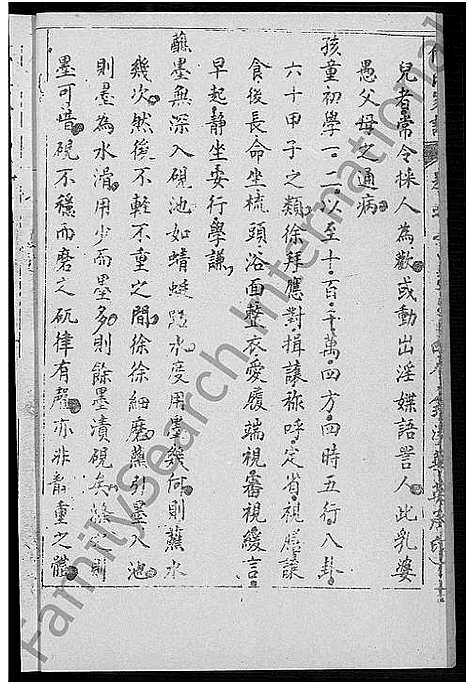 兒者常令抹人為歡或動出淫媒語詈人此乳婆
愚父母之通病
孩童初學一二以至十百千萬四方四時五行八卦
六十甲子之類徐拜應對揖讓称呼定省視膳讓
食後長命坐梳頭浴面整衣愛履端視審視緩言
早起靜坐委行學謙
蘸墨無深入硯池如蜻蜓點水度用墨幾何則蘸水
幾次然後不輕不重之間徐徐細磨蘸引墨入池
則墨為水滑用少而墨多則餘墨漬硯矣滌之則
墨可惜硯不穩而磨之矹硉有聲亦非厚重之體
FamilySearch International